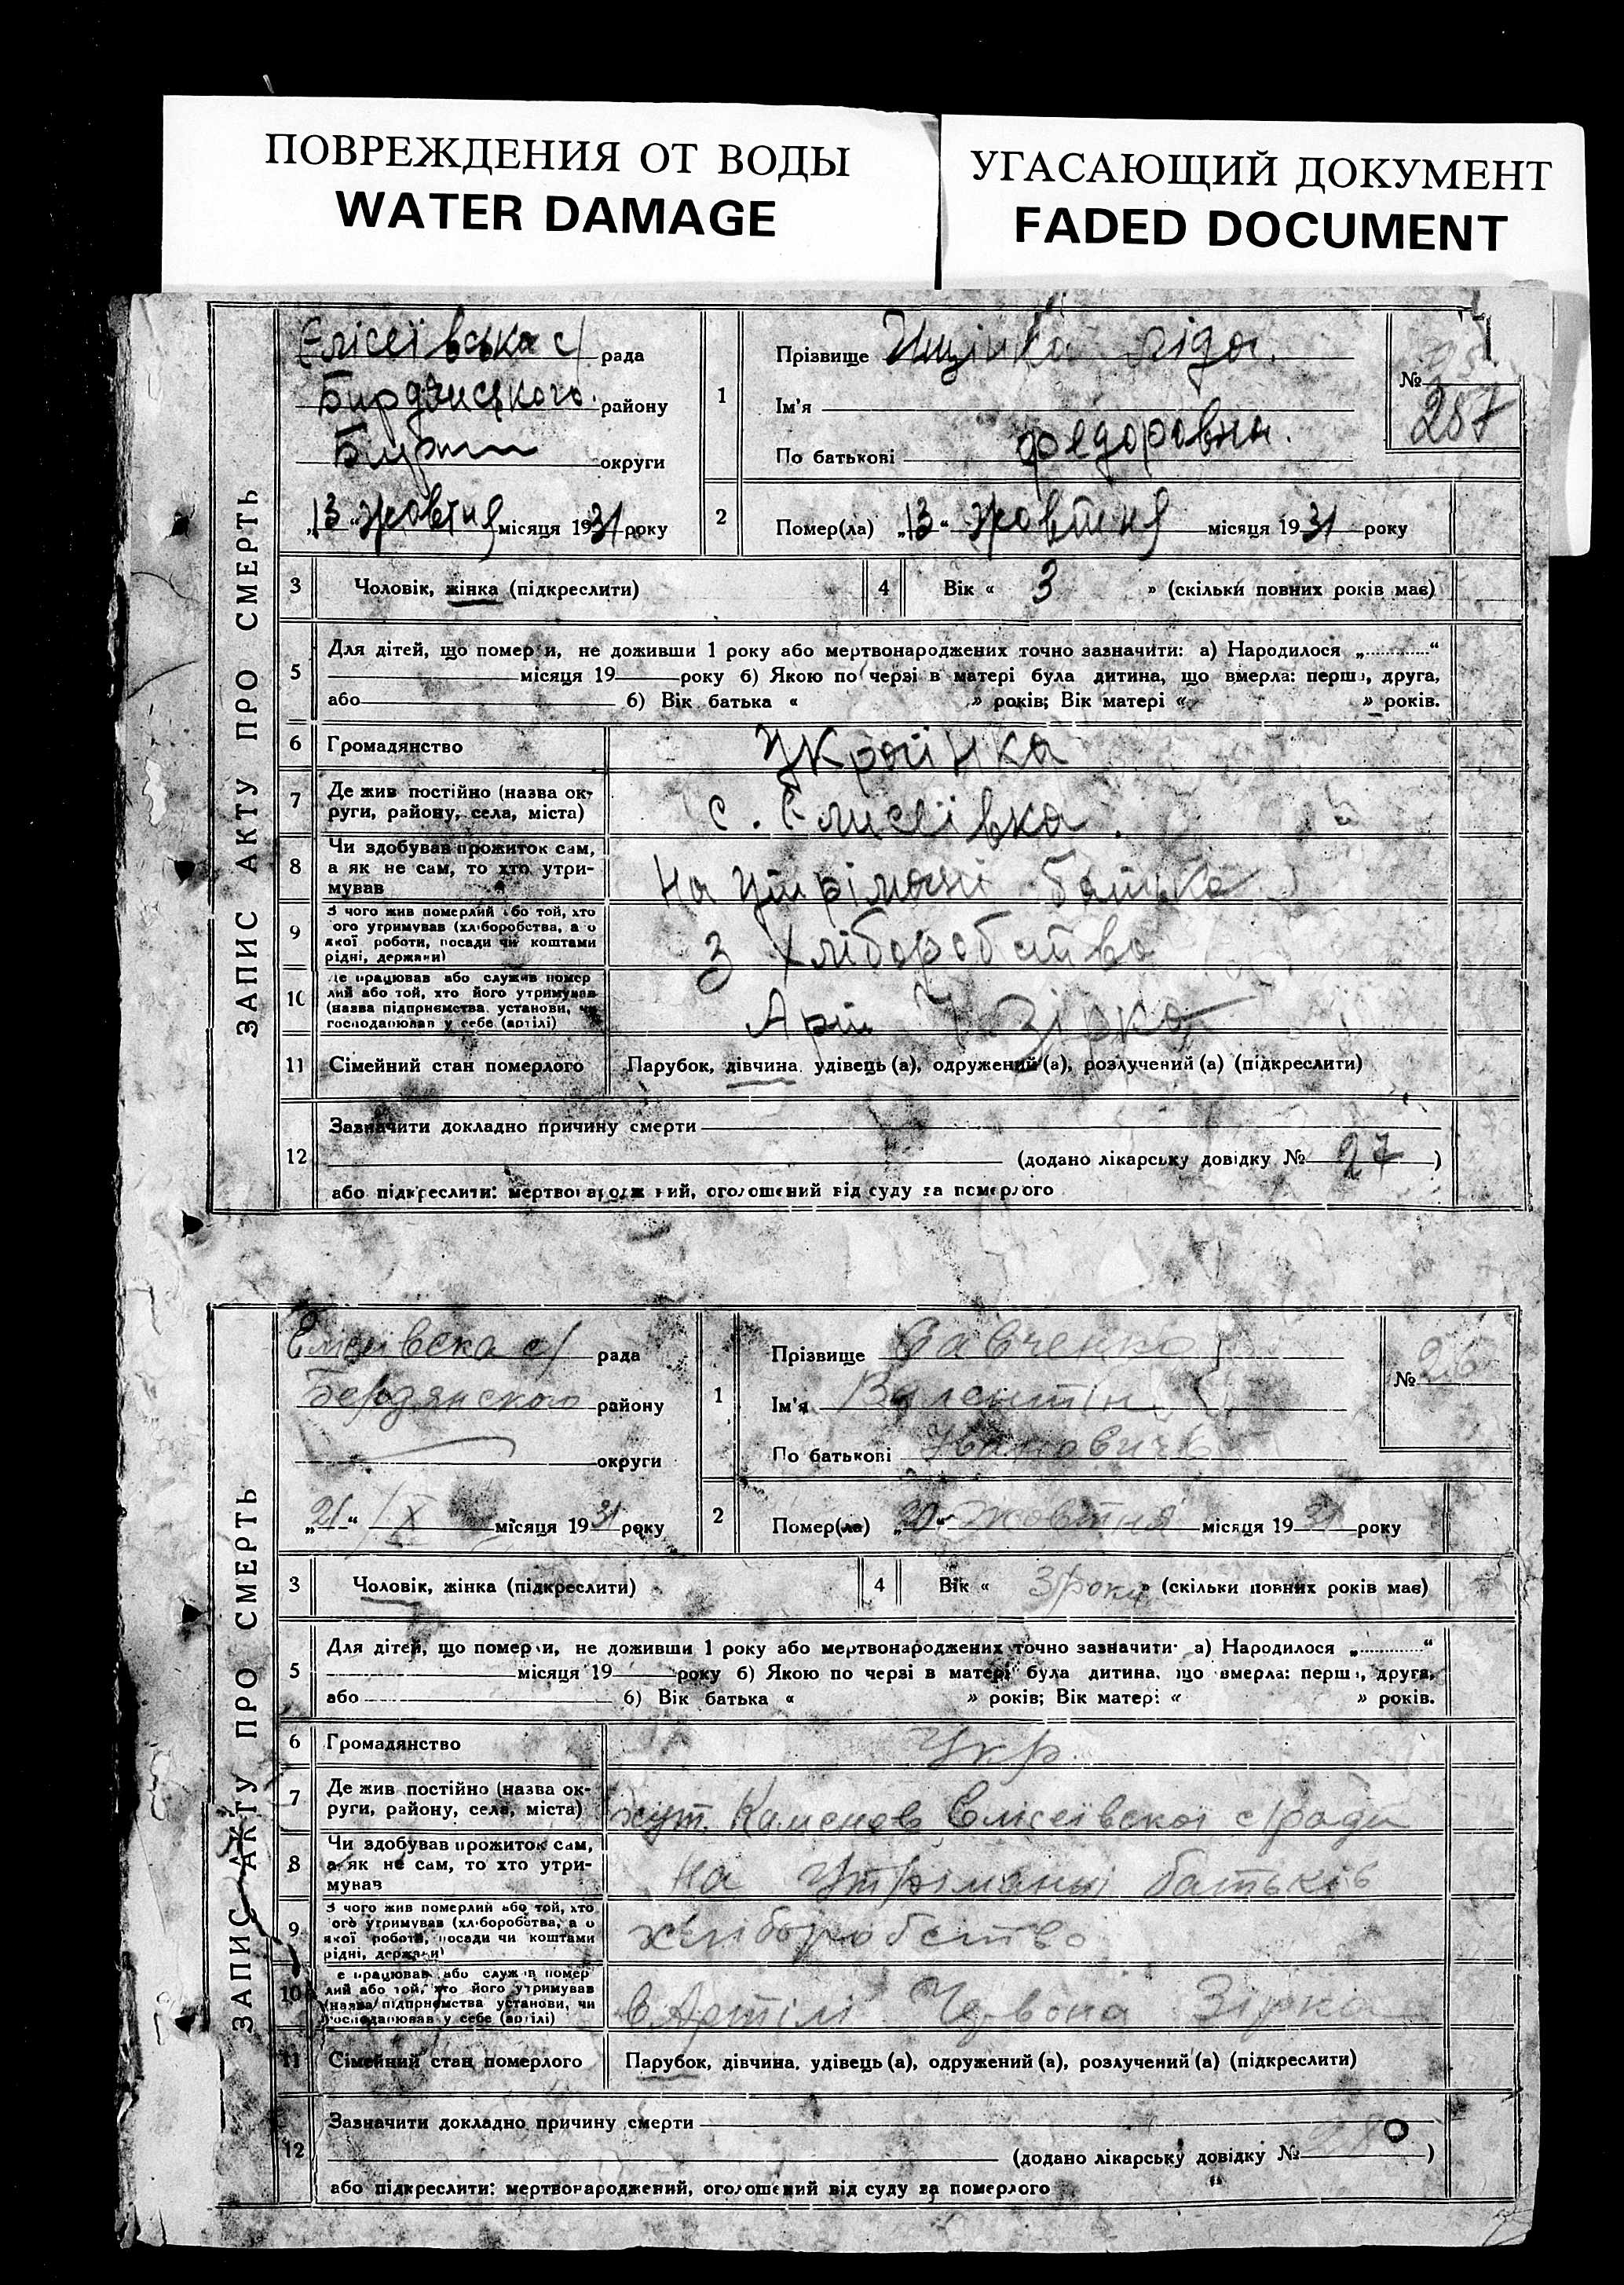 ПОВРЕЖДЕНИЯ ОТ ВОДЫ
WATER DAMAGE
УГАСАЮЩИЙ ДОКУМЕНТ
FADED DOCUMENT
ЗАПИС АКТУ ПРО СМЕРТЬ
Єлісеївська с/ рада
Бирдянського району
округи
„13“ жовтня місяця 1931 року
1
Прізвище Ліда.
Ім'я
По батькові Федоровна.
№
287
2
Помер(ла) „13“ жовтня місяця 1931 року
3 Чоловік, жінка (підкреслити)
4 Вік « 3 » (скільки повних років має)
5
Для дітей, що померли, не доживши 1 року або мертвонароджених точно зазначити: а) Народилося „............“
місяця 19 року б) Якою по черзі в матері була дитина, що вмерла: перша, друга,
або б) Вік батька « » років; Вік матері « » років.
6 Громадянство Українка
7 Де жив постійно (назва ок-
руги, району, села, міста)
с. Елисеївка.
8 Чи здобував прожиток сам,
а як не сам, то хто утри-
мував
на утрімані батька
9 З чого жив померлий або той, хто
ого утримував (хліборобства, а о
якої роботи, посади чи коштами
рідні, держави)
З хліборобство
10 де працював або служив помер
лий або той, хто його утримував
(назва підприємства, установи, чи
господарював у себе (артілі)
Арт Ч Зірка
11 Сімейний стан померлого Парубок, дівчина, удівець (а), одружений (а), розлучений (а) (підкреслити)
12
Зазначити докладно причину смерти
(додано лікарську довідку № 27 )
або підкреслити: мертвонароджений, оголошений від суду за померлого
ЗАПИС АКТУ ПРО СМЕРТЬ
Елісеївска с/ рада
Бердянского району
округи
„21“ X місяця 1931 року
1
Прізвище Савченко
Ім'я Валентін
По батькові Івановичь
№ 26
2
Помер(ла) „20“ жовтня місяця 1931 року
3 Чоловік, жінка (підкреслити)
4 Вік « 3 роки » (скільки повних років має)
5
Для дітей, що померли, не доживши 1 року або мертвонароджених точно зазначити: а) Народилося „............“
місяця 19 року б) Якою по черзі в матері була дитина, що вмерла: перша, друга,
або б) Вік батька « » років; Вік матері « » років.
6 Громадянство Укр.
7 Де жив постійно (назва ок-
руги, району, села, міста)
хут. Каменов Елісеївскої с/ради
8 Чи здобував прожиток сам,
а як не сам, то хто утри-
мував
на утріманні батьків
9 З чого жив померлий або той, хто
ого утримував (хліборобства, а о
якої роботи, посади чи коштами
рідні, держави)
хліборобство
10 е працював або служив помер
лий або той, хто його утримував
(назва підприємства установи, чи
господарював у себе (артілі)
в Артілі Червона Зірка
11 Сімейний стан померлого Парубок, дівчина, удівець (а), одружений (а), розлучений (а) (підкреслити)
12
Зазначити докладно причину смерти
(додано лікарську довідку № )
або підкреслити: мертвонароджений, оголошений від суду за померлого